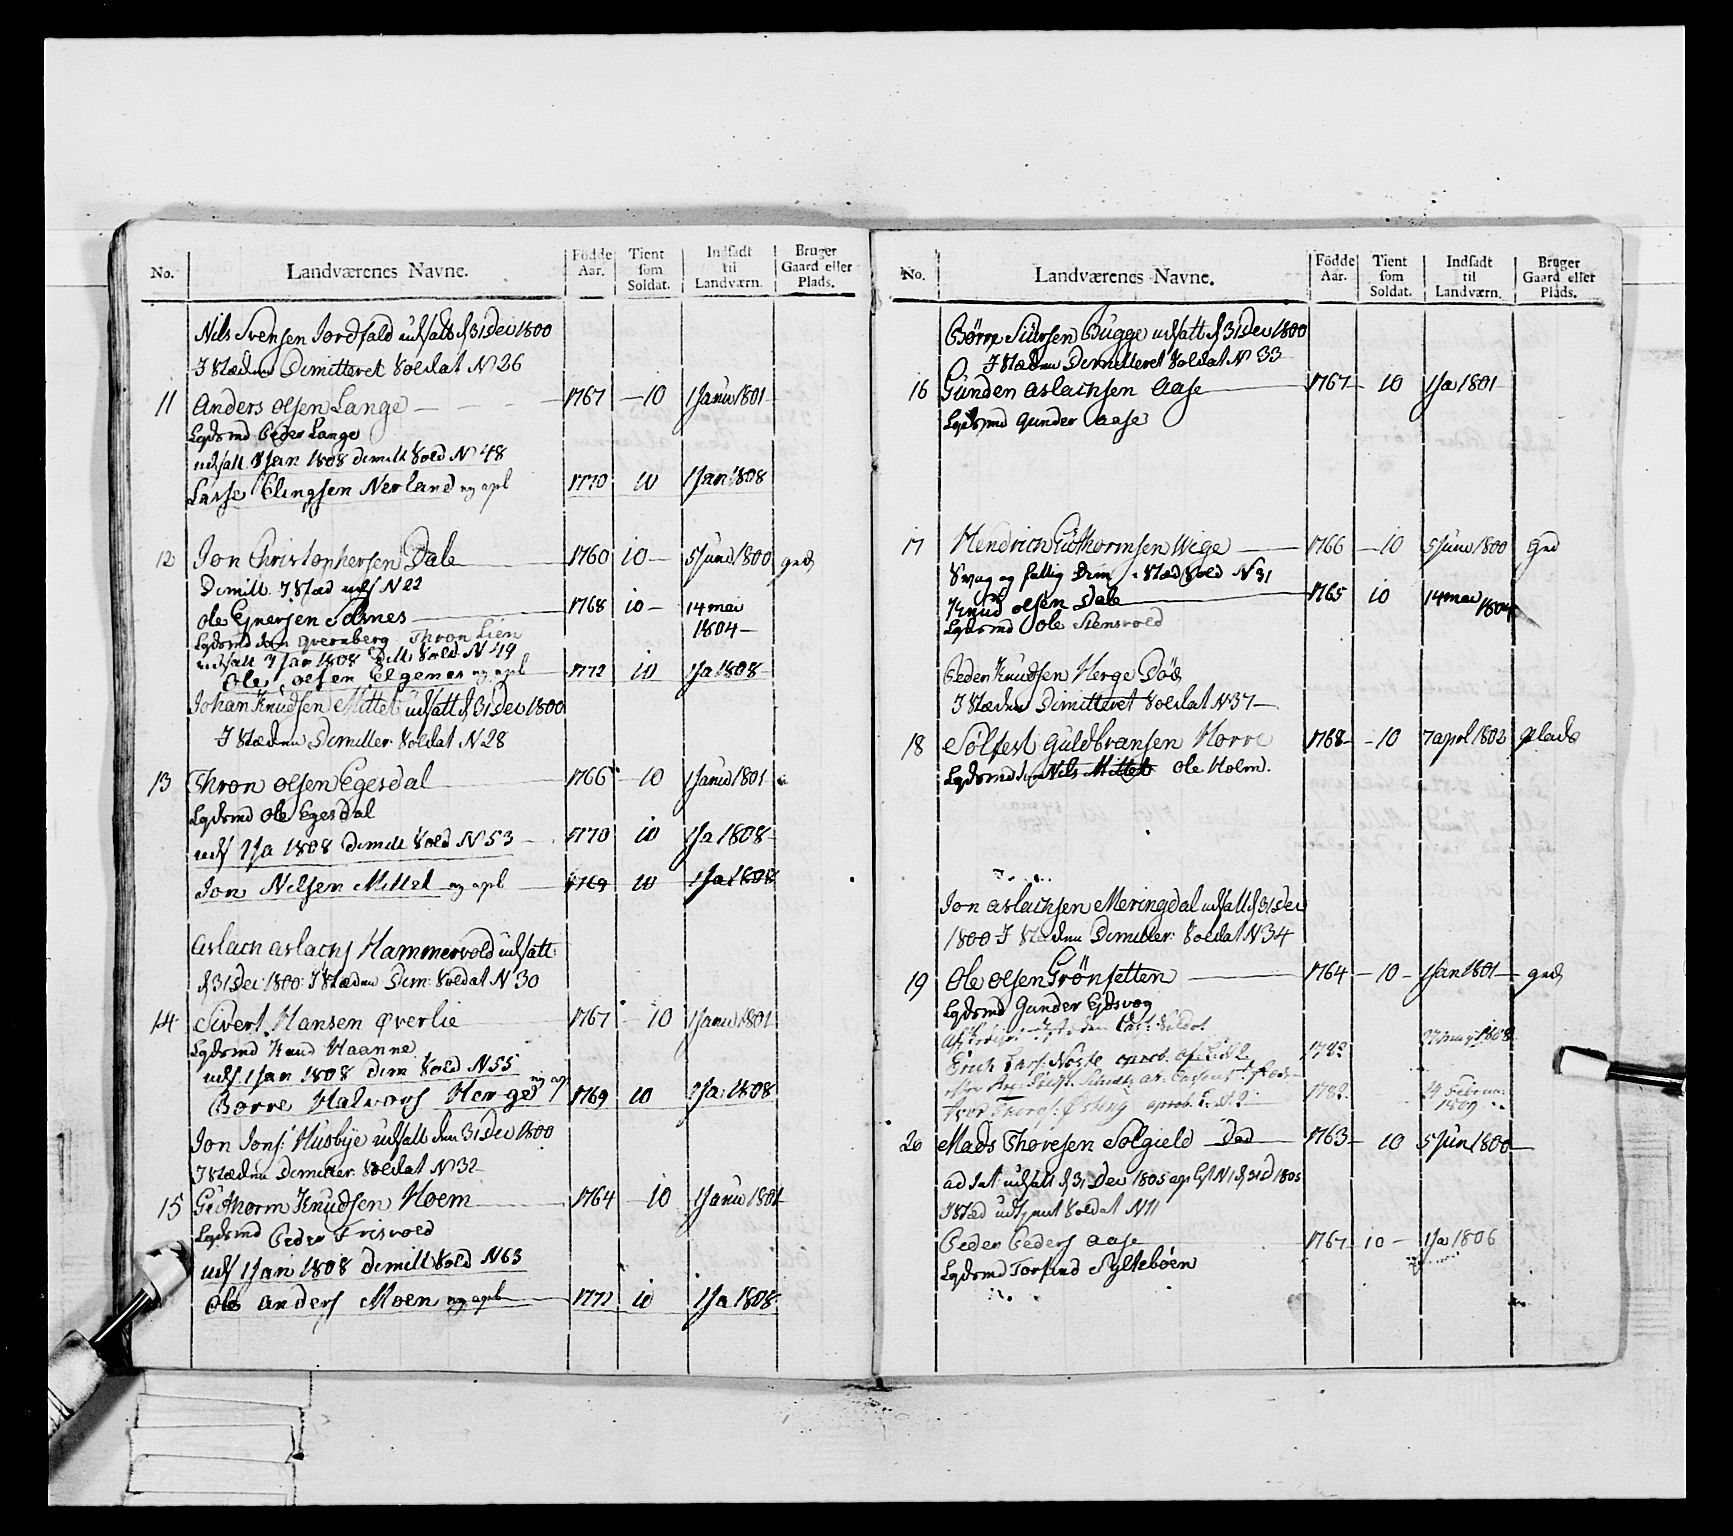 No. Landværenes Navne. Födde Aar. Tient som Soldat. Indsadt til Landværn. Bruger Gaard eller Plads.
Nils Svensen Jordfald udsatt d 31 Dec 1800
I Stæden Dimitteret Soldat N 26
11 Anders Olsen Lange 1767 10 1 Janu 1801
Lgdsmd Peder Lange
udsatt 1 Jan 1808 dimitt Sold N 48
Lasse Elingsen Nerland 1770 10 1 Jan 1808
12 Jon Christophersen Dale 1760 10 5 Juni 1800
Dimitt I Stæd uds N 22
Ole Ejnersen Solsnes 1768 10 14 mai
Lgdsmd Thron Lien 1804
udsatt 1 Jan 1808 Sold N 49
Ole Olsen Elgenes 1772 10 1 Ja 1808
Johan Knudsen Mittet udsatt d 31 Dec 1800
I Stæden Dimitter Soldat N 28
13 Thron Olsen Egesdal 1766 10 1 Janu 1801
Lgdsmd Ole Egesdal
uds 1 Ja 1808 Dimitt Sold N 53 1770 10 1 Ja 1808
Jon Nilsen Mittet 1769 10 1 Ja 1808
Aslach Aslachs Hammervold udsatt
d 31 Dec: 1800 I Stæden Dim: Soldat N 30
14 Sivert Hansen Øverlie 1767 10 1 Janu 1801
Lgdsmd Knud Haanne
uds 1 Jan 1808 dim Sold N 55
Børre Halvors Herge 1769 10 1 Ja: 1808
Jon Jons: Husbye udsatt den 31 Dec 1800
I Stæden Dimitter Soldat N 32
15 Guthorm Knudsen Hoem 1764 10 1 Janu 1801
Lgdsmd Peder Frisvold
uds 1 Jan 1808 dimitt Sold N 63
Ole Anders Moen 1771 10 1 Ja 1808
No. Landværenes Navne. Födde Aar. Tient som Soldat. Indsadt til Landværn. Bruger Gaard eller Plads.
Børre Siursen Bugge udsatt d 31 Dec 1800
I Stæden Dimitteret Soldat N 33
16 Gunder Aslachsen Aase 1767 10 1 Ja 1801
Lgdsmd Gunder Aase
17 Hendrich Guthormsen Wege 1766 10 5 Juni 1800
Svag og fallig Dim i Stæd Sold N 31
Knud Olsen Dale 1765 10 14 mai 1804
Lgdsmd Ole Stensvold
Peder Knudsen Herge Död
I Stæden Dimitteret Soldat N 37
18 Sølfest Guldbransen Horre 1768 10 7 aprl 1802 Plads
Lgdsmd Nils Mittet Ole Holm.
Jon Aslachsen Meringdal udsatt d 31 Dec
1800 I Stæden Dimitter: Soldat N 34
19 Ole Olsen Grönsetten 1764 10 1 Jan 1801
Lgdsmd Gunder Ejdsvog
Erich Lars: Noste
1782 Februar
1809
20 Mads Thoresen Solgield 1763 10 5 Jun 1800
udsatt d 31 Dec 1805
I Stæd udtjent Soldat N 11
Peder Peders Aase 1767 10 1 Ja 1806
Lgdsmd Torfind Syltebøen